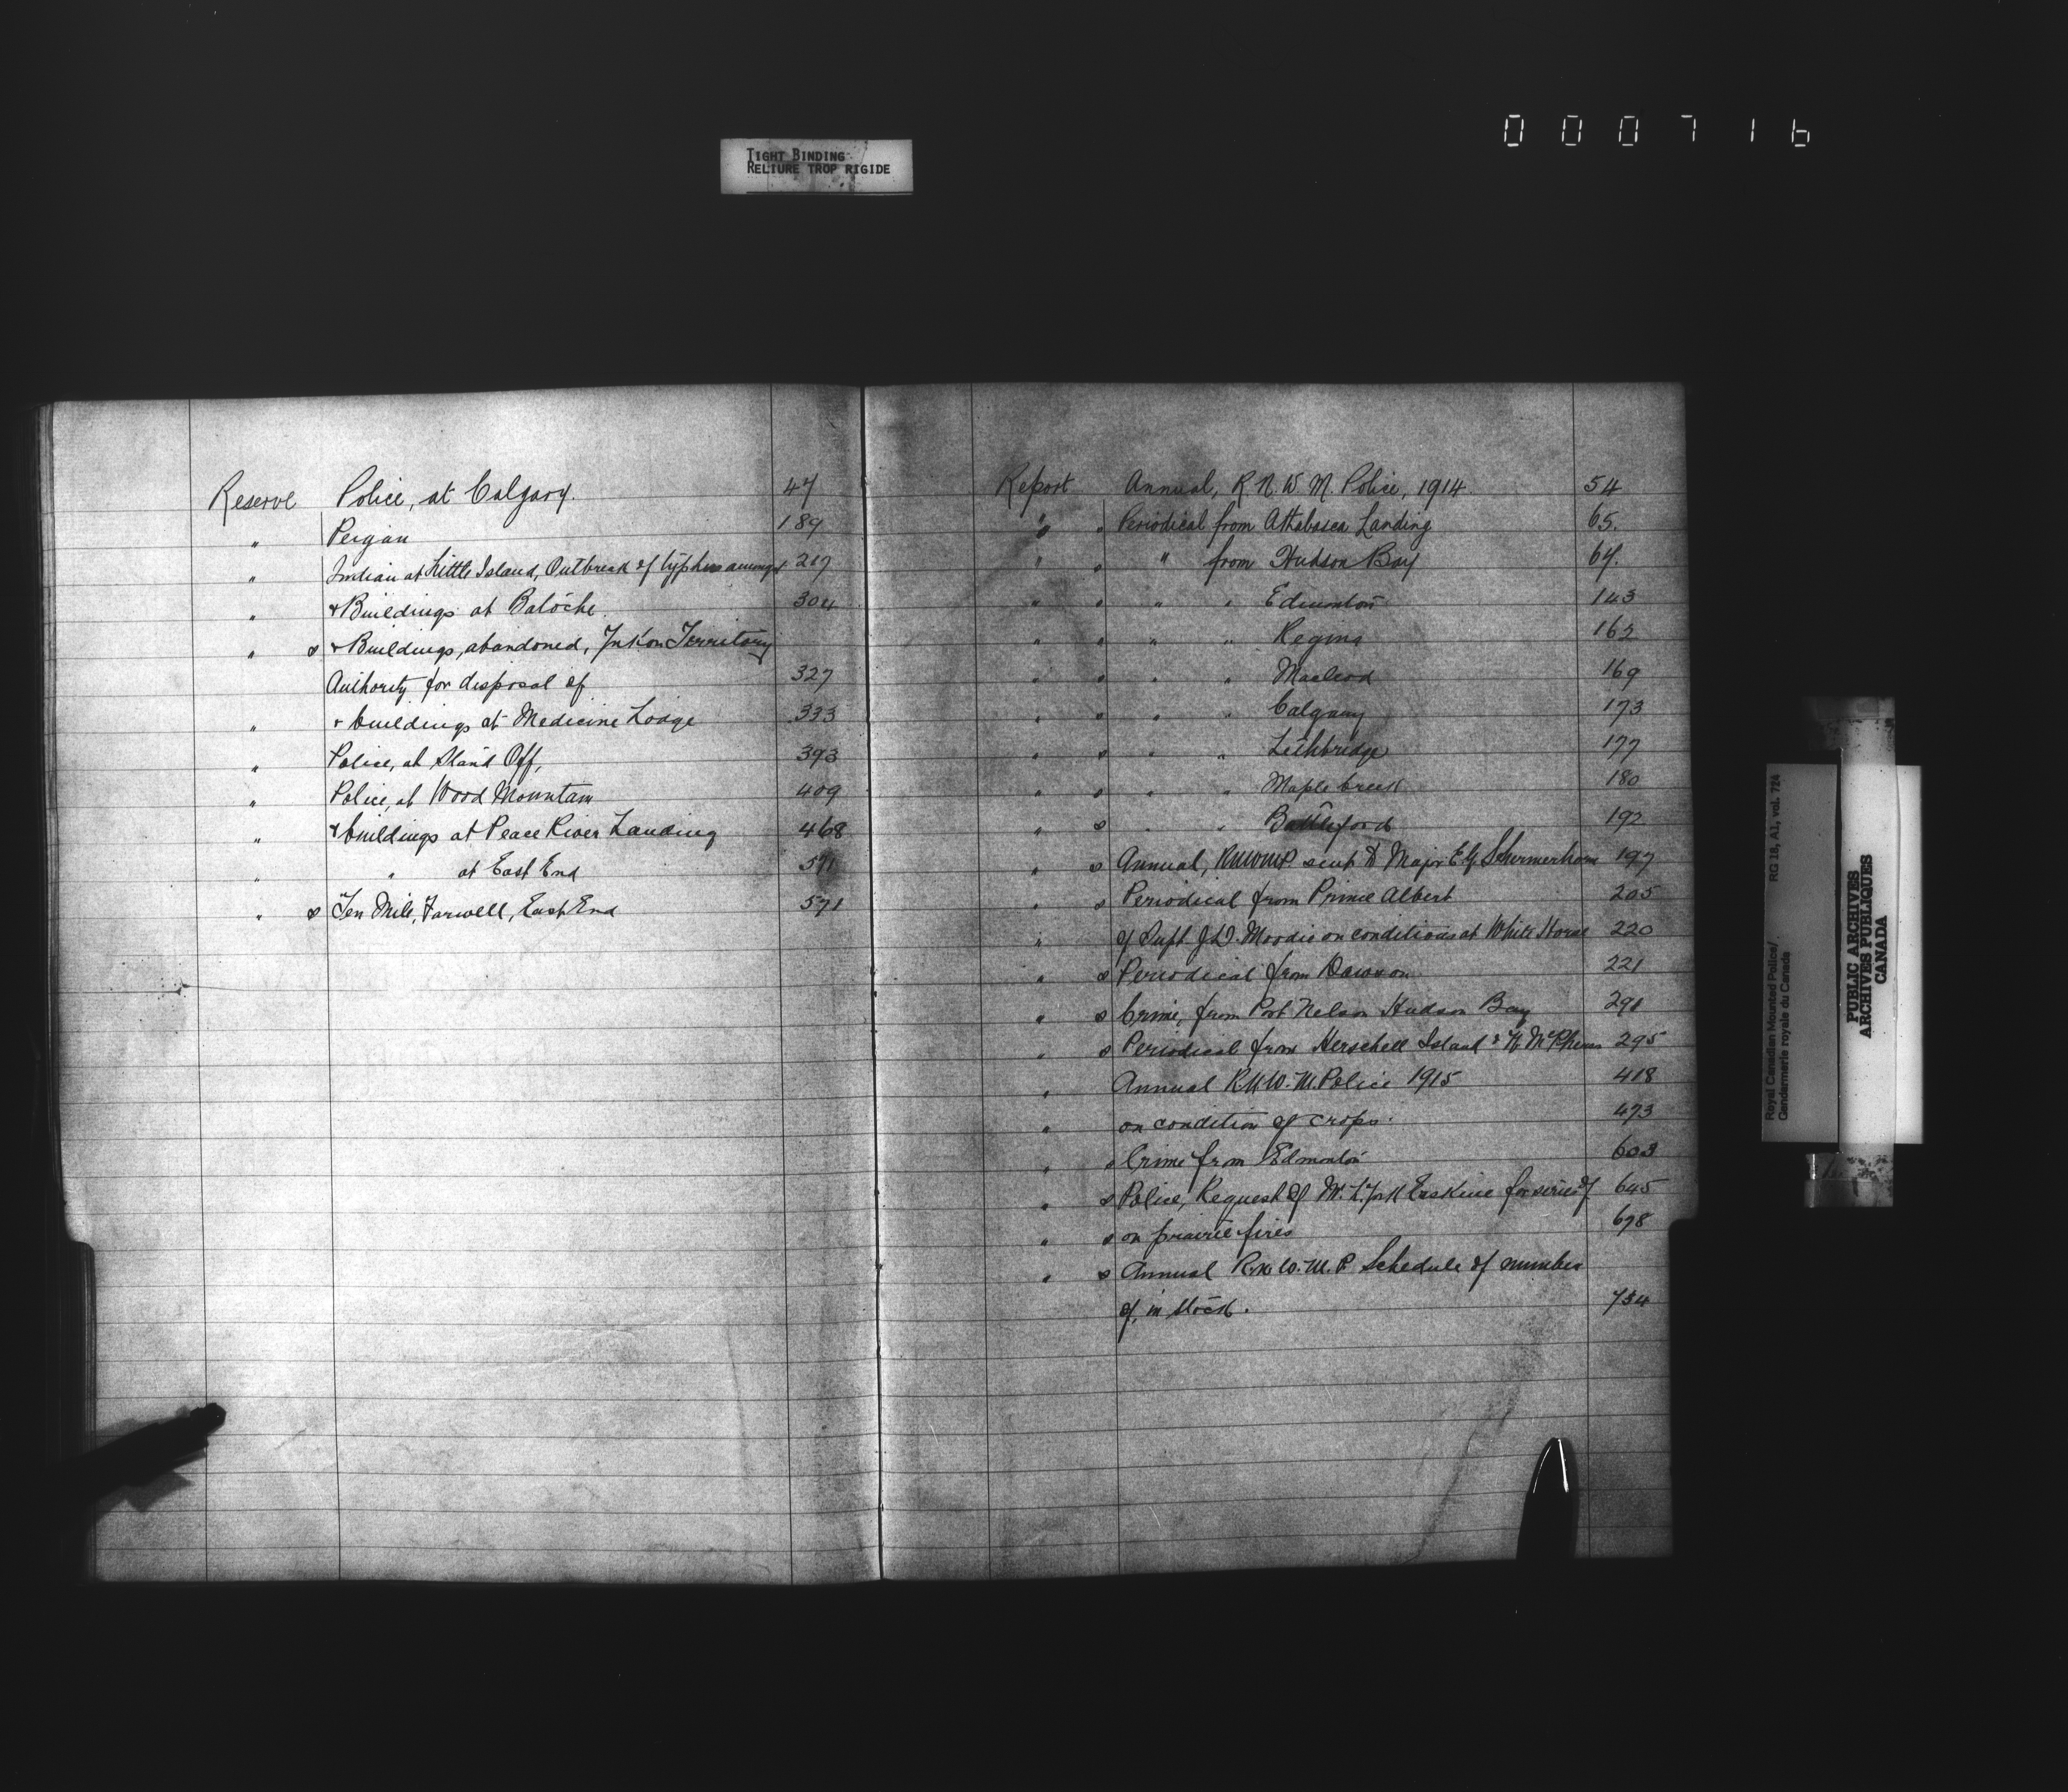 000716
TIGHT BINDING
RELIURE TROP RIGIDE
Reserve Police, at Calgary. 47
" Peigan 189
" Indian at Little Island, Outbreak of typhus amongst 217
" & Buildings at Batoche. 304
" s & Buildings, abandoned, Yukon Territory
Authority for disposal of 327
" & buildings at Medicine Lodge 333
" Police, at Stand Off, 393
" Police, at Wood Mountain 409
" & buildings at Peace River Landing 468
" " at East End 571
" s Ten Mile, Farwell, East End 571
Report Annual, R.N.W.M. Police, 1914 54
" s Periodical from Athabasca Landing 65.
" s " from Hudson Bay 64.
" s " " Edmonton 143
" s " " Regina 162
" s " " Macleod 169
" s " " Calgary 173
" s " " Lethbridge 177
" s " " Maple Creek 180
" s " " Battleford 192
" s Annual, RNWMP. sent to Major E.G. Schermerhorn 197
" s Periodical from Prince Albert 205
" of Supt J.D. Moodie on conditions at White Horse 220
" s Periodical from Dawson 221
" s Crime, from Port Nelson Hudson Bay 291
" s Periodical from Herschell Island & Ft McPherson 295
" Annual R.N.W.M. Police 1915 418
" on condition of crops. 473
" s Crime from Edmonton 603
" s Police, Request of Mr. L. York Erskine for series of 645
" s on prairie fires 678
" s Annual R.N.W.M.P. Schedule of number
of, in stock. 734
Royal Canadian Mounted Police/
Gendarmerie royale du Canada
RG 18, A1, vol. 724
PUBLIC ARCHIVES
ARCHIVES PUBLIQUES
CANADA